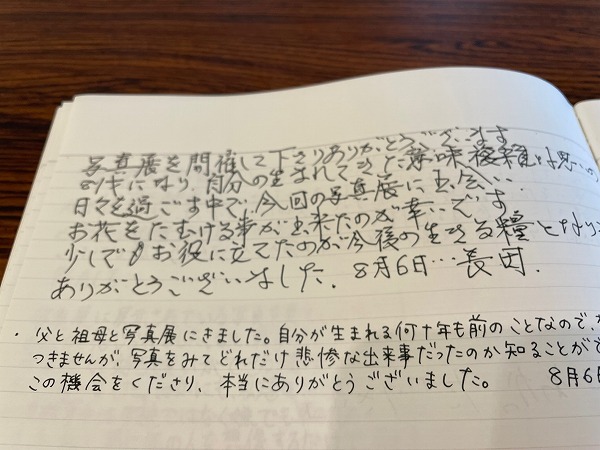 写真展を開催して下さりありがとうございます
81才になり、自分の生まれてきた意味 思いの
日々を過ごす中で、今回の写真展に出会い、
お花をたむける事が出来たのが幸いです
少しでもお役に立てたのが今後の生きる糧となり
ありがとうございました。8月6日…長田.
・父と祖母と写真展にきました。自分が生まれる何十年も前のことなので、
つきませんが、写真をみてどれだけ悲惨な出来事だったのか知ることが
この機会をくださり、本当にありがとうございました。 8月6日